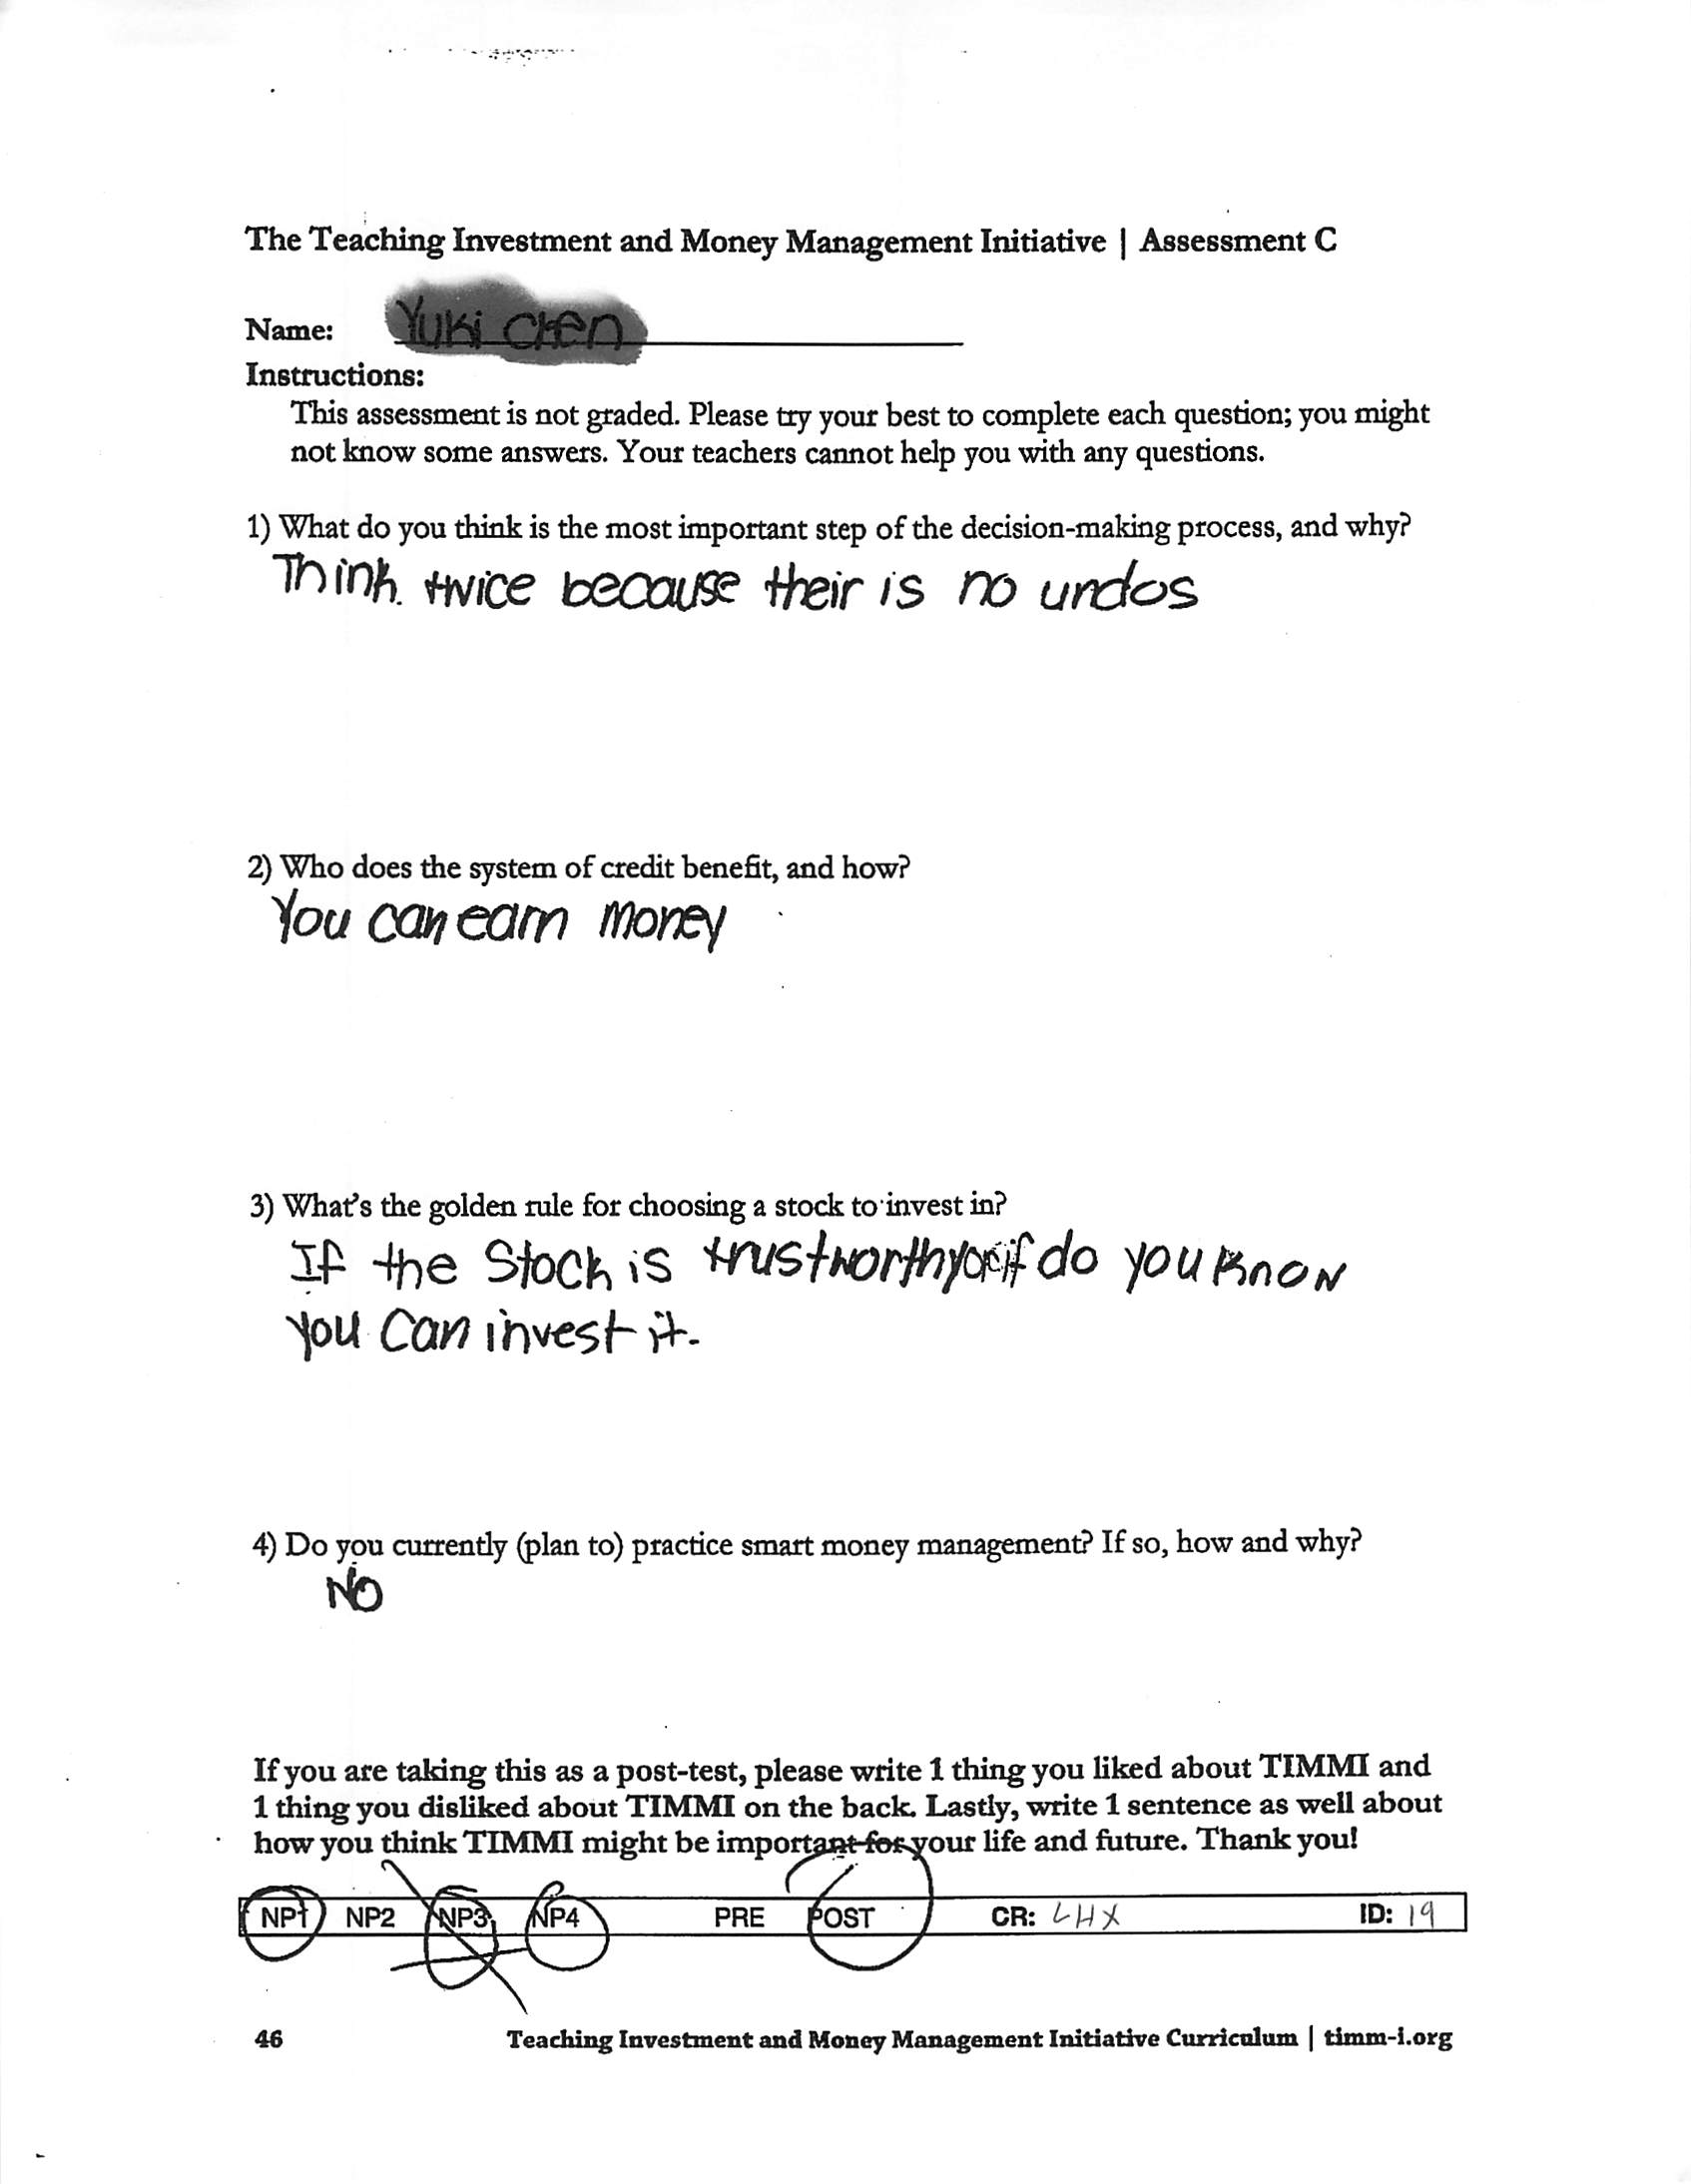 The Teaching Investment and Money Management Initiative | Assessment C
Name: Yuki Chen
Instructions:
This assessment is not graded. Please try your best to complete each question; you might
not know some answers. Your teachers cannot help you with any questions.
1) What do you think is the most important step of the decision-making process, and why?
Think twice because their is no undos
2) Who does the system of credit benefit, and how?
You can earn money
3) What's the golden rule for choosing a stock to invest in?
If the Stock is trustworthy or if do you know
you can invest it.
4) Do you currently (plan to) practice smart money management? If so, how and why?
No
If you are taking this as a post-test, please write 1 thing you liked about TIMMI and
1 thing you disliked about TIMMI on the back. Lastly, write 1 sentence as well about
how you think TIMMI might be important for your life and future. Thank you!
NP1 NP2 NP3 NP4 PRE POST CR: LHX ID: 19
46 Teaching Investment and Money Management Initiative Curriculum | timm-i.org